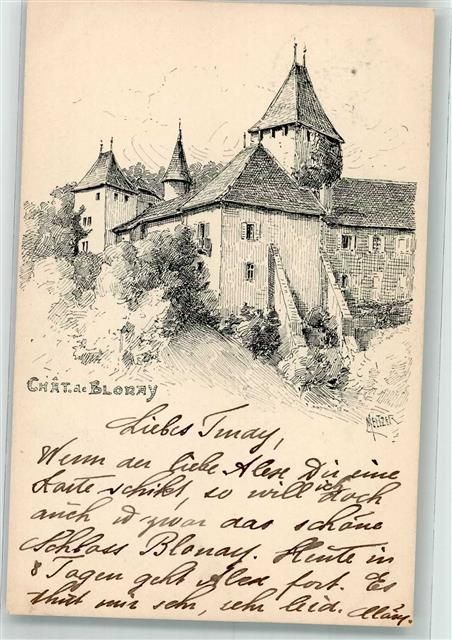 CHÂT. de BLONAY
MELTZER
Liebes Trudy,
Wenn der liebe Alex Dir eine
Karte schikt, so will ich doch
auch u zwar das schöne
Schloss Blonay. Heute in
8 Tagen geht Alex fort. Es
thut mir sehr, sehr leid. Mary.